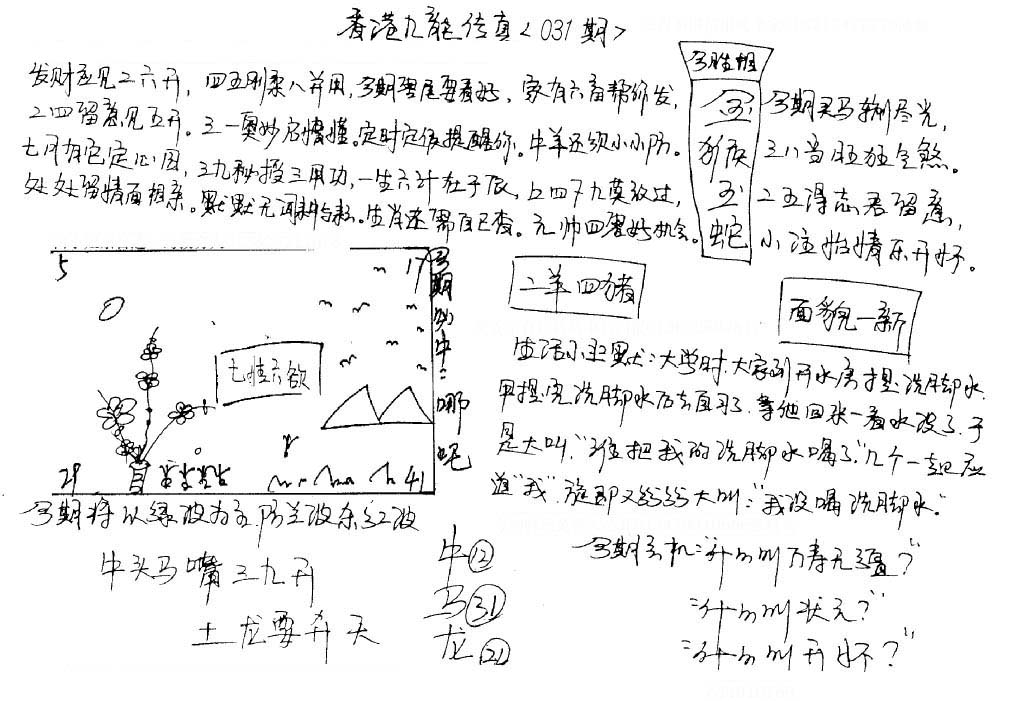 香港九龙传真<031期>
发财应见二六开，四五刚柔八并用，今期留尾要看好，家有六畜帮你发，
二四留意见五开。三一奥妙启懵懂。定时定位提醒你。牛羊还须小小防。
七 定心因，三九秘授三用功，一生六计在于辰，五四十九莫放过，
处处留情面相亲。默默无词耕与耘。生肖还需自己查。元帅四留好机会。
今胜相
金
猴
玉
蛇
今期买马捌尽光，
三八当旺狂全煞。
二五得志君留意，
小注怡情乐开怀。
5
17
29
41
七情六欲
今期别中：哪吒
二羊四猪
面貌一新
生活小幽默：大学时，大家到开水房提洗脚水，
甲提完洗脚水后去自习了，等他回来一看水没了，于
是大叫，“谁把我的洗脚水喝了”，几个一起应
道“我”，旋即又纷纷大叫：“我没喝洗脚水。”
今期将以绿波为主，防兰波杀红波
牛头马嘴三九开
土龙要升天
牛⑫
马㉛
龙㉑
今期玄机：“什么叫万寿无疆？”
“什么叫状元？”
“什么叫开怀？”